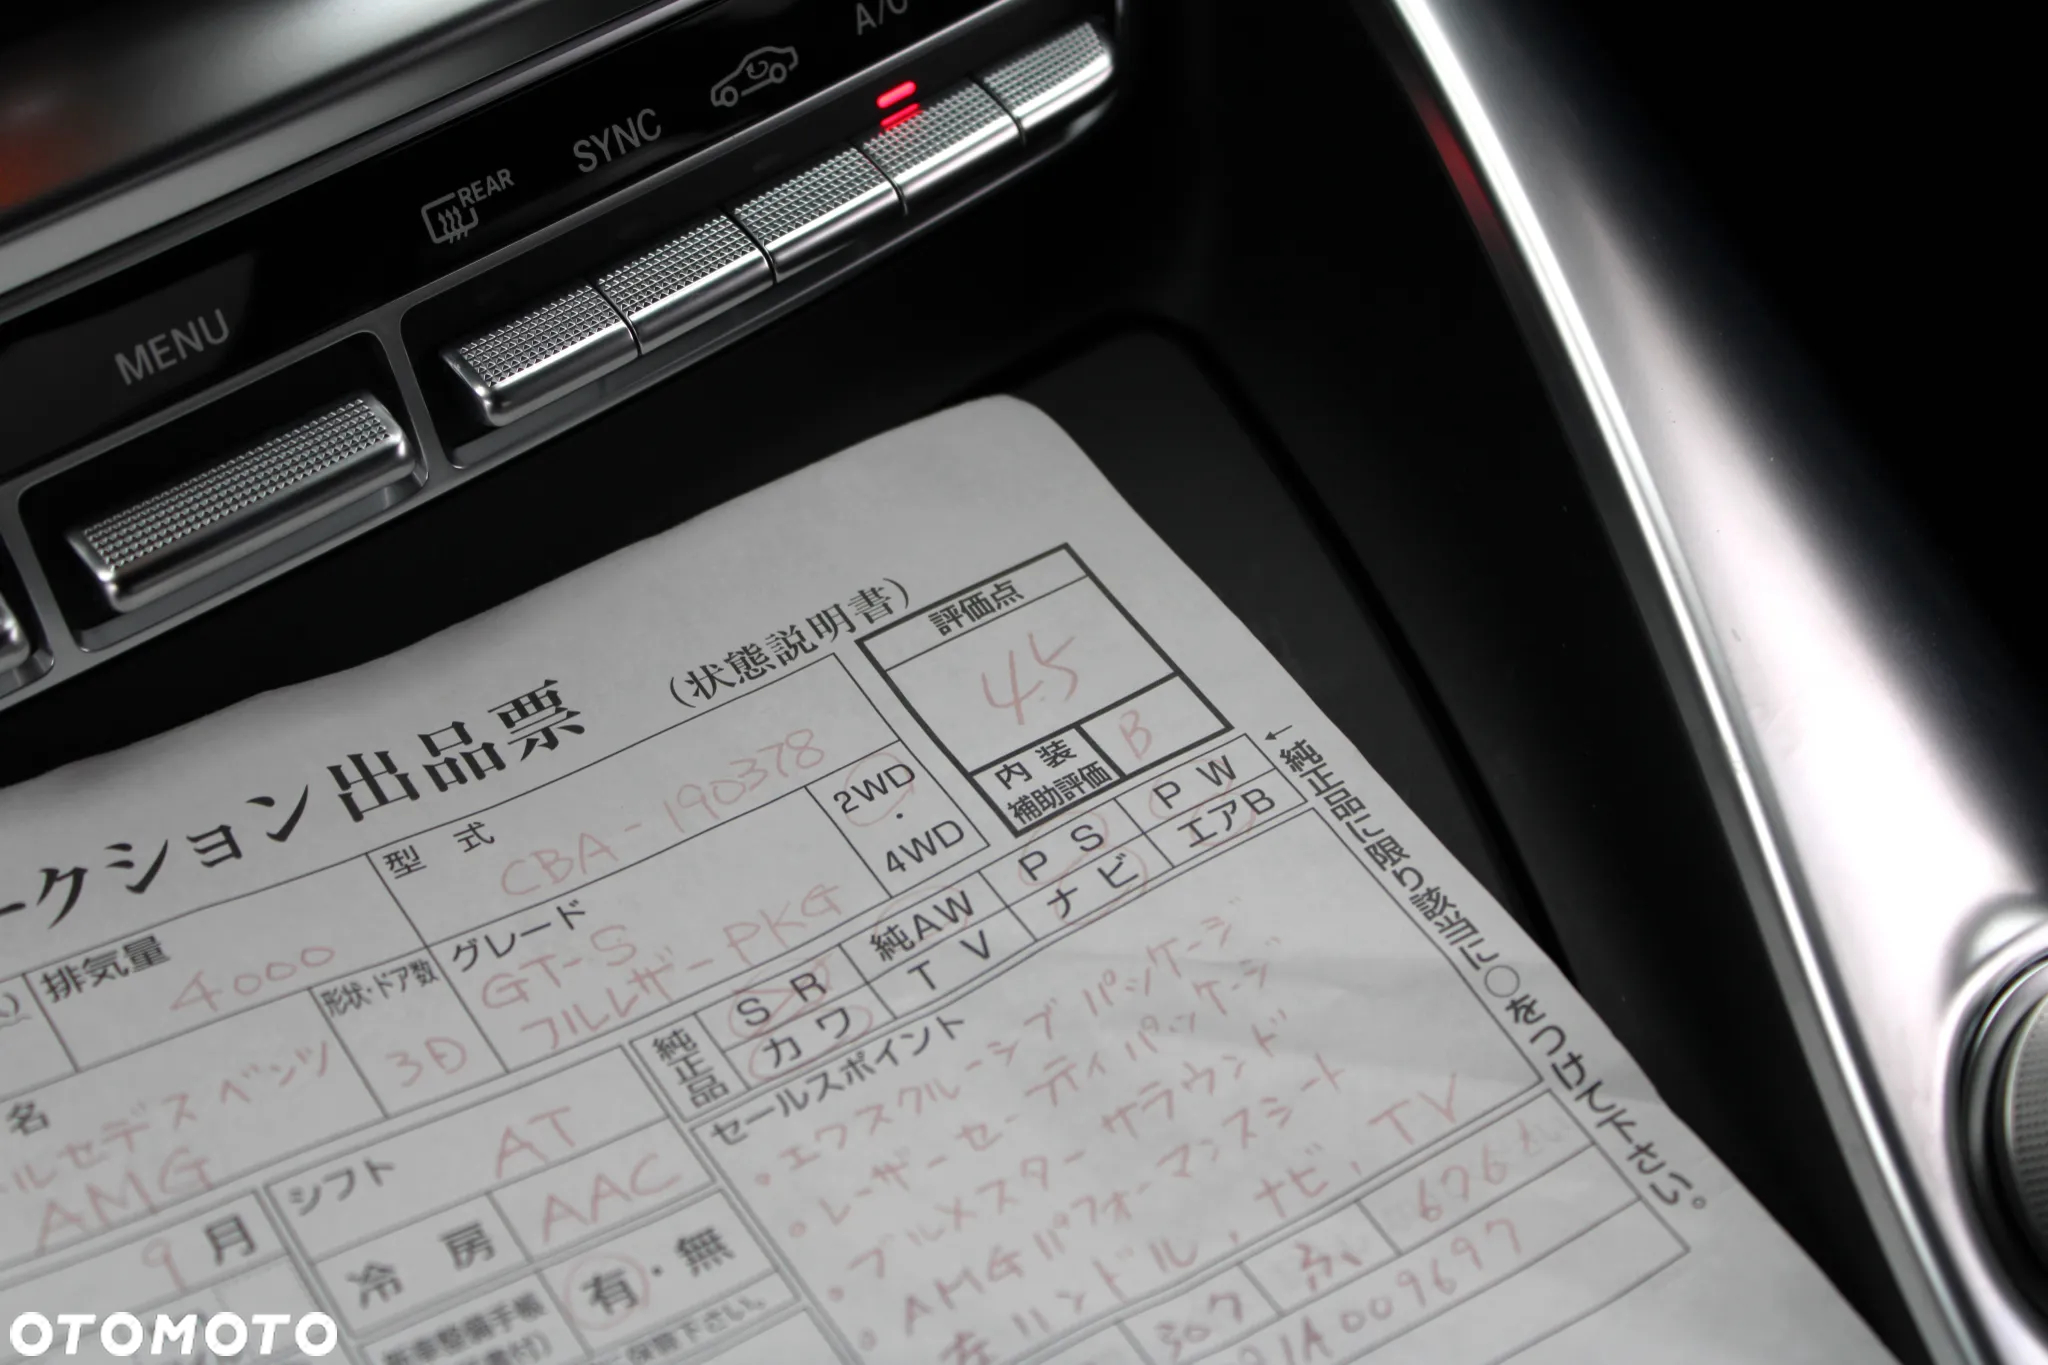 A/C
SYNC
REAR
MENU
ークション出品票
(状態説明書)
評価点
4.5
内装
補助評価
B
型式
CBA-190378
2WD
・
4WD
排気量
4000
グレード
GT-S
フルレザーPKG
形状・ドア数
3D
名
ルセデスベンツ
AMG
9月
シフト
AT
冷房
AAC
有・無
純正品
SR
純AW
PS
PW
カワ
TV
ナビ
エアB
←純正品に限り該当に○をつけて下さい。
セールスポイント
・エクスクルーシブパッケージ
・レーザーセーティパッケージ
・ブルメスターサラウンド
・AMGパフォーマンスシート
左ハンドル，ナビ，TV
1A009697
OTOMOTO